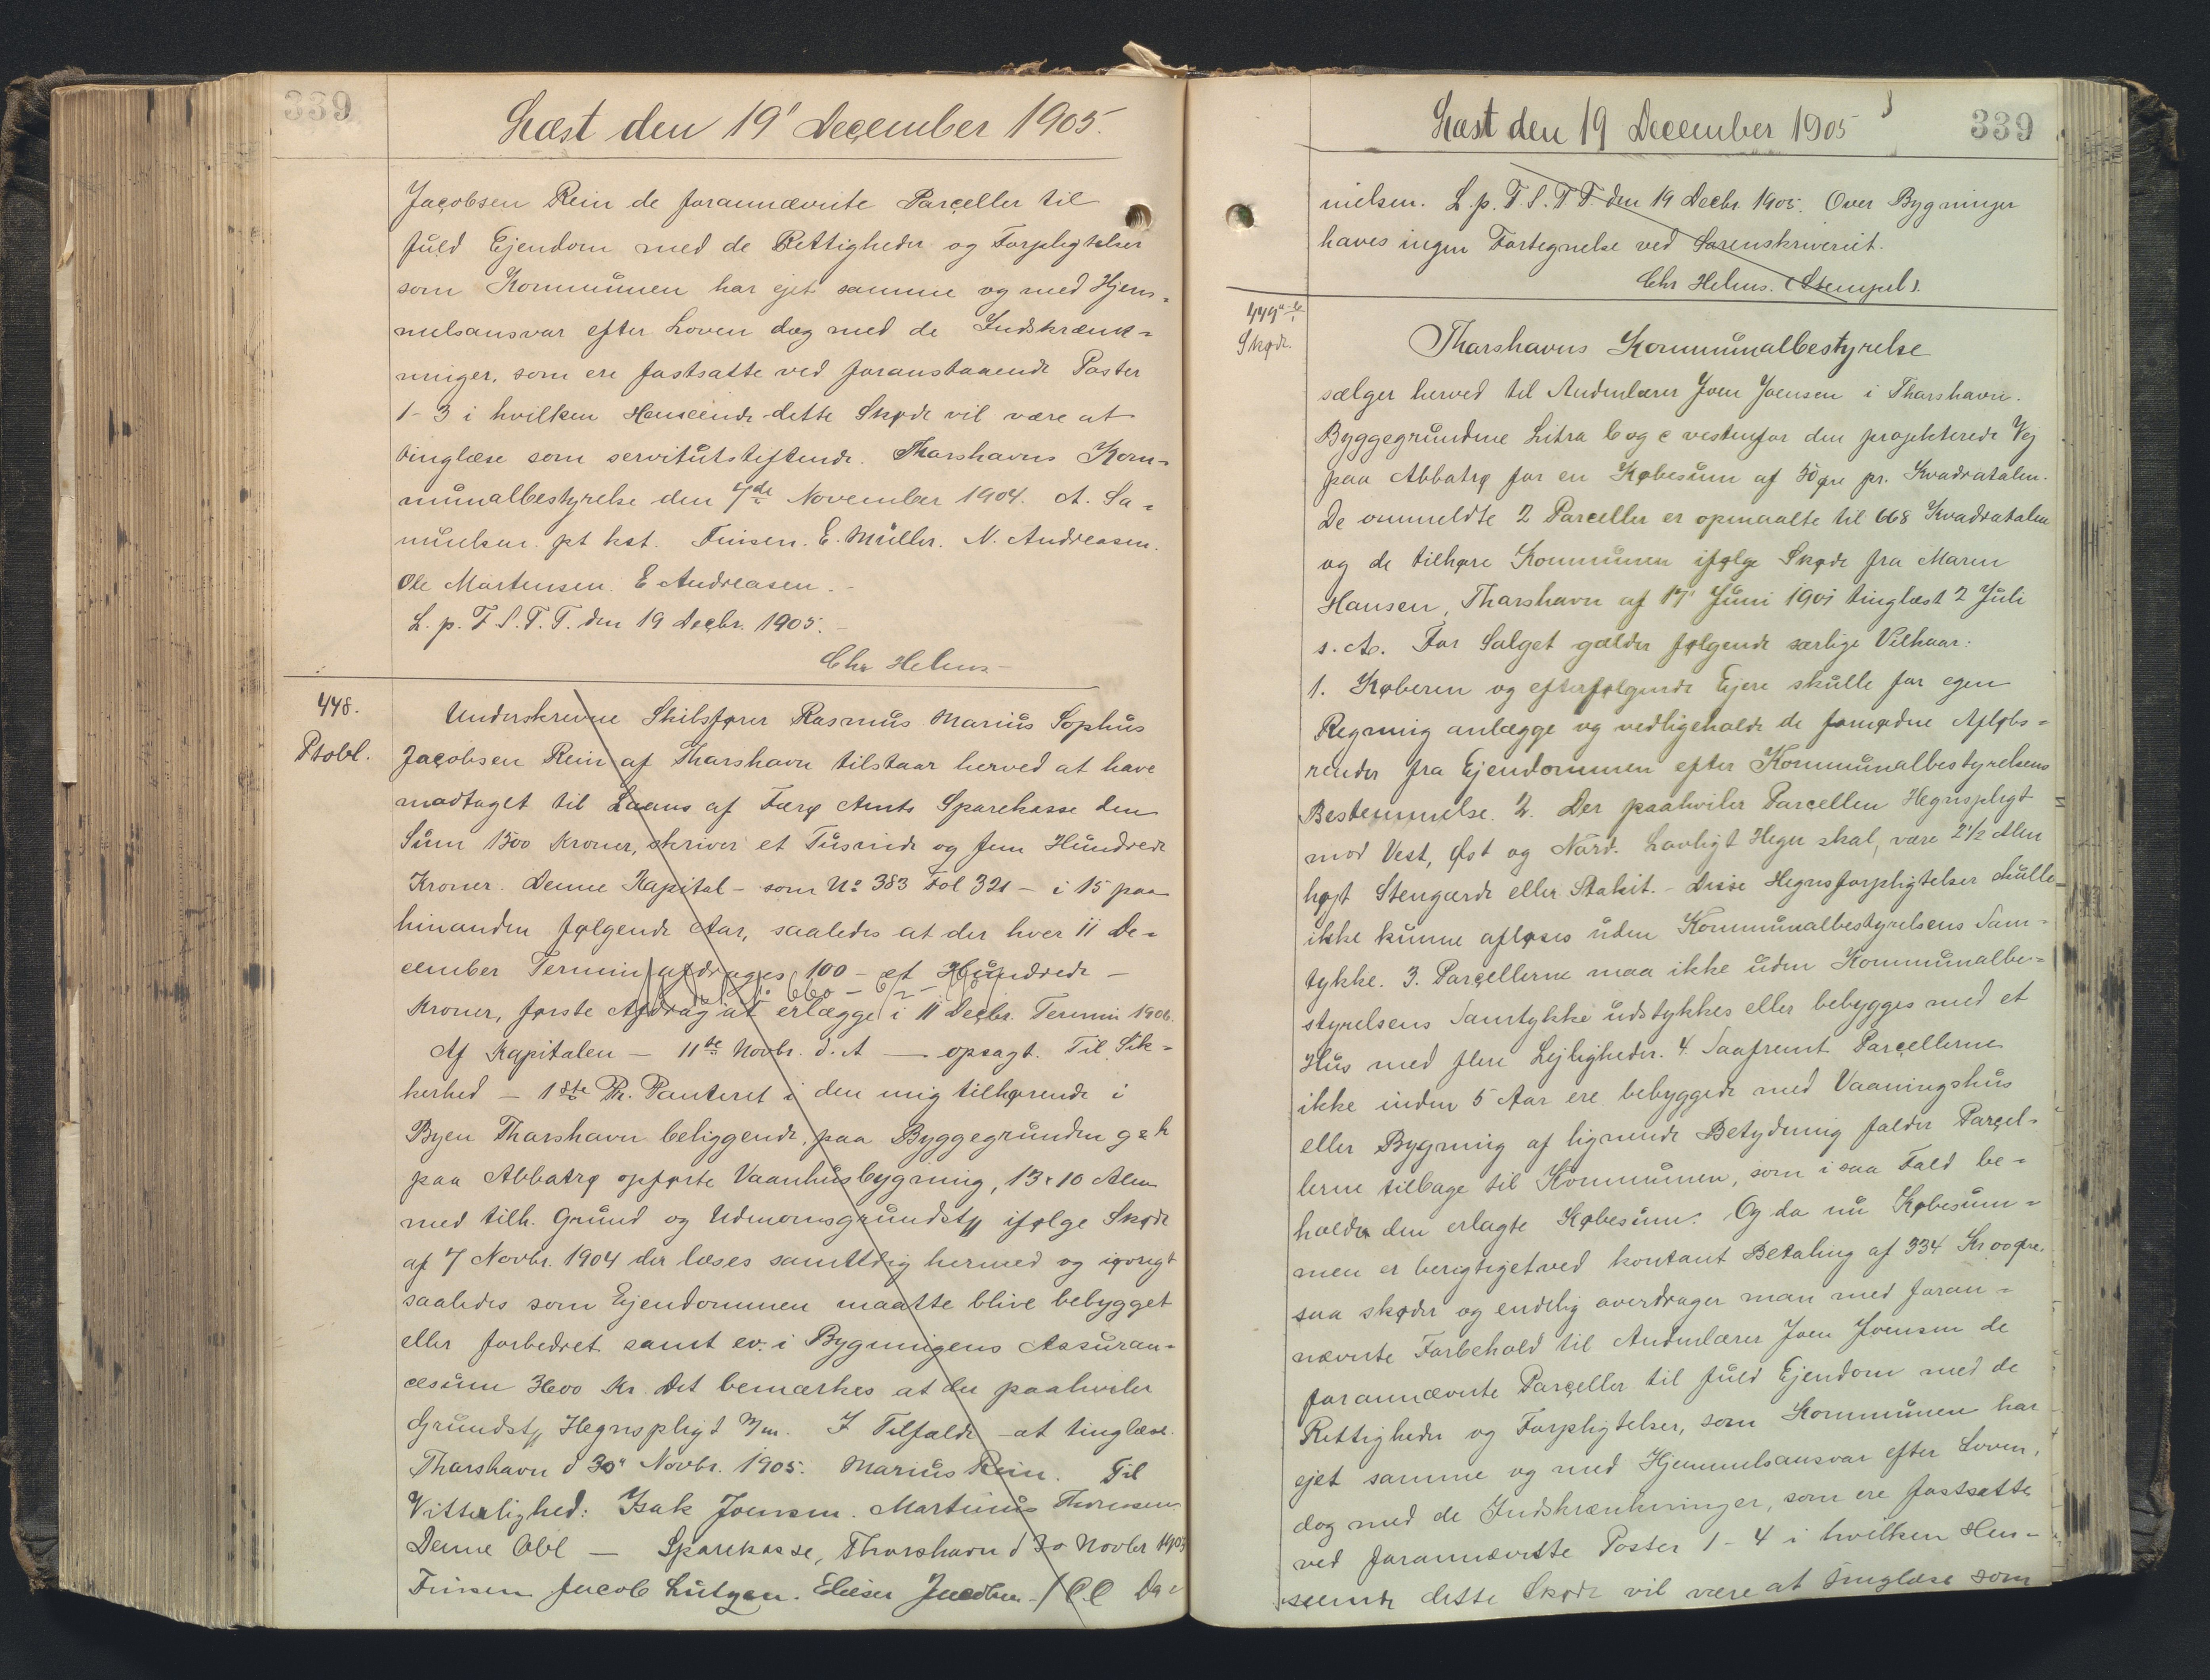 339
Læst den 19' December 1905.
Jacobsen Rein de forannævnte Parceller til
fuld Ejendom med de Rettigheder og Forpligtelser
som Kommunen har ejet samme og med Hjem-
melsansvar efter Loven dog med de Indskrænk-
ninger, som ere fastsatte ved foranstaaende Poster
1-3 i hvilken Henseende dette Skøde vil være at
tinglæse som servitutstiftende. Thorshavns Kom-
munalbestyrelse den 7de November 1904. A. Sa-
muelsen. pt kst. Finsen. E. Müller. N. Andreasen.
Ole Mortensen. E Andreasen.
L. p. F. S. T. T. den 19 Decbr. 1905.
Chr Helms
448.
Ptobl.
Underskrevne Skibsfører Rasmus Marius Sophus
Jacobsen Rein af Thorshavn tilstaar herved at have
modtaget til Laans af Færø Amts Sparekasse den
Sum 1500 Kroner, skriver et Tusinde og fem Hundrede
Kroner. Denne Kapital - som No 383 Fol 321 - i 15 paa
hinanden følgende Aar, saaledes at der hver 11 De-
cember Termin afdrages 100 - et Hundrede -
Kroner, første Afdrag at erlægge i 11 Decbr. Termin 1906.
Af Kapitalen - 11te Novbr. d. A - opsagt. Til Sik-
kerhed - 1ste Pr. Panteret i den mig tilhørende i
Byen Thorshavn beliggende, paa Byggegrunden g & h
paa Abbatrø opførte Vaanhusbygning, 13 x 10 Alen
med tilh. Grund og Udenomsgrundst ifølge Skøde
af 7 Novbr. 1904 der læses samtidig hermed og iøvrigt
saaledes som Ejendommen maatte blive bebygget
eller forbedret samt ev. i Bygningens Assuran-
cesum 3600 Kr. Det bemærkes at der paahviler
Grundst Hegnspligt m/m. I Tilfælde - at tinglæse.
Thorshavn d 30' Novbr. 1905. Marius Rein. Til
Vitterlighed: Isak Joensen. Martinus Thomsen
Denne Obl - Sparekasse, Thorshavn d 30 Novbr 1905
Finsen Jacob Lützen. Elieser Jacobsen / C.C Da-
Læst den 19 December 1905
339
nielsen. L. p. F. S. T. T. den 19 Decbr. 1905. Over Bygninger
haves ingen Fortegnelse ved Sorenskriveriet.
Chr Helms. (Stempel).
449 a-b
Skøde.
Thorshavns Kommunalbestyrelse
sælger herved til Andenlærer Joen Joensen i Thorshavn.
Byggegrundene Litra b og c vestenfor den projekterede Vej
paa Abbatrø for en Købesum af 50 øre pr. Kvadratalen.
De ommeldte 2 Parceller er opmaalte til 668 Kvadratalen
og de tilhøre Kommunen ifølge Skøde fra Maren
Hansen, Thorshavn af 17' Juni 1901 tinglæst 2 Juli
s. A. For Salget gælder følgende særlige Vilkaar:
1. Køberen og efterfølgende Ejere skulle for egen
Regning anlægge og vedligeholde de fornødne Afløbs-
render fra Ejendommen efter Kommunalbestyrelsens
Bestemmelse. 2. Der paahviler Parcellen Hegnspligt
mod Vest, Øst og Nord. Lovligt Hegn skal være 2 1/2 Alen
højt Stengærde eller Stakit. - Disse Hegnsforpligtelser skulle
ikke kunne afløses uden Kommunalbestyrelsens Sam-
tykke. 3. Parcellerne maa ikke uden Kommunalbe-
styrelsens Samtykke udstykkes eller bebygges med et
Hus med flere Lejligheder. 4. Saafremt Parcellerne
ikke inden 5 Aar ere bebyggede med Vaaningshus
eller Bygning af lignende Betydning falder Parcel-
lerne tilbage til Kommunen, som i saa Fald be-
holder den erlagte Købesum. Og da nu Købesum-
men er berigtiget ved kontant Betaling af 334 Kr 00 øre,
saa skøder og endelig overdrager man med foran-
nævnte Forbehold til Andenlærer Joen Joensen de
forannævnte Parceller til fuld Ejendom med de
Rettigheder og Forpligtelser, som Kommunen har
ejet samme og med Hjemmelsansvar efter Loven,
dog med de Indskrænkninger, som ere fastsatte
ved forannævnte Poster 1-4 i hvilken Hen-
seende dette Skøde vil være at tinglæse som